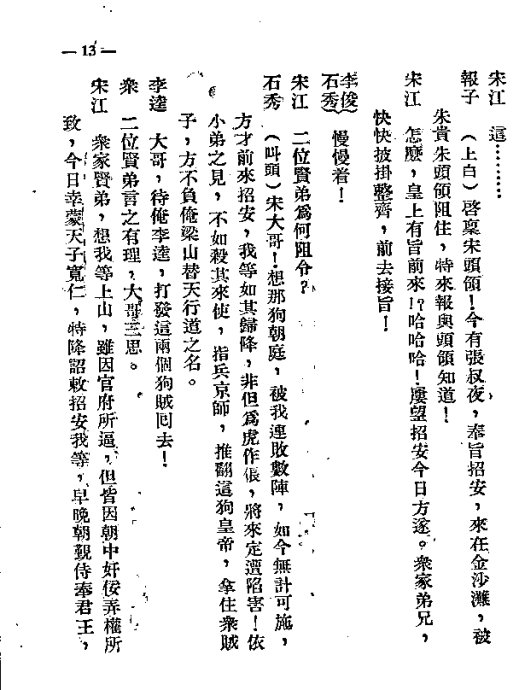 宋江　這………
報子　（上白）啓稟宋頭領！今有張叔夜，奉旨招安，來在金沙灘，被
朱貴朱頭領阻住，特來報與頭領知道！
宋江　怎麽，皇上有旨前來!?哈哈哈！屢望招安今日方遂。衆家弟兄，
快快披掛整齊，前去接旨！
李俊
石秀　慢慢着！
宋江　二位賢弟爲何阻令？
石秀　（叫頭）宋大哥！想那狗朝庭，被我連敗數陣，如今無計可施，
方才前來招安，我等如其歸降，非但爲虎作倀，將來定遭陷害！依
小弟之見，不如殺其來使，指兵京師，推翻這狗皇帝，拿住衆賊
子，方不負俺梁山替天行道之名。
李逵　大哥，待俺李逵，打發這兩個狗賊囘去！
衆　二位賢弟言之有理，大哥三思。
宋江　衆家賢弟，想我等上山，雖因官府所逼，但皆因朝中奸佞弄權所
致，今日幸蒙天子寬仁，特降詔敕招安我等，早晚朝覲侍奉君王，
—13—